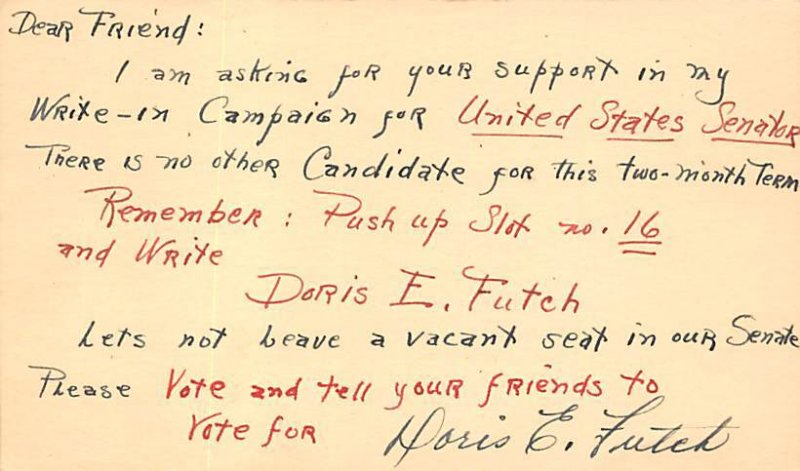 Dear Friend:
I am asking for your support in my
Write-in Campaign for United States Senator
There is no other Candidate for this two-month Term
Remember: Push up Slot no. 16
and Write
Doris E. Futch
Lets not leave a vacant seat in our Senate
Please Vote and tell your friends to
Vote for Doris E. Futch